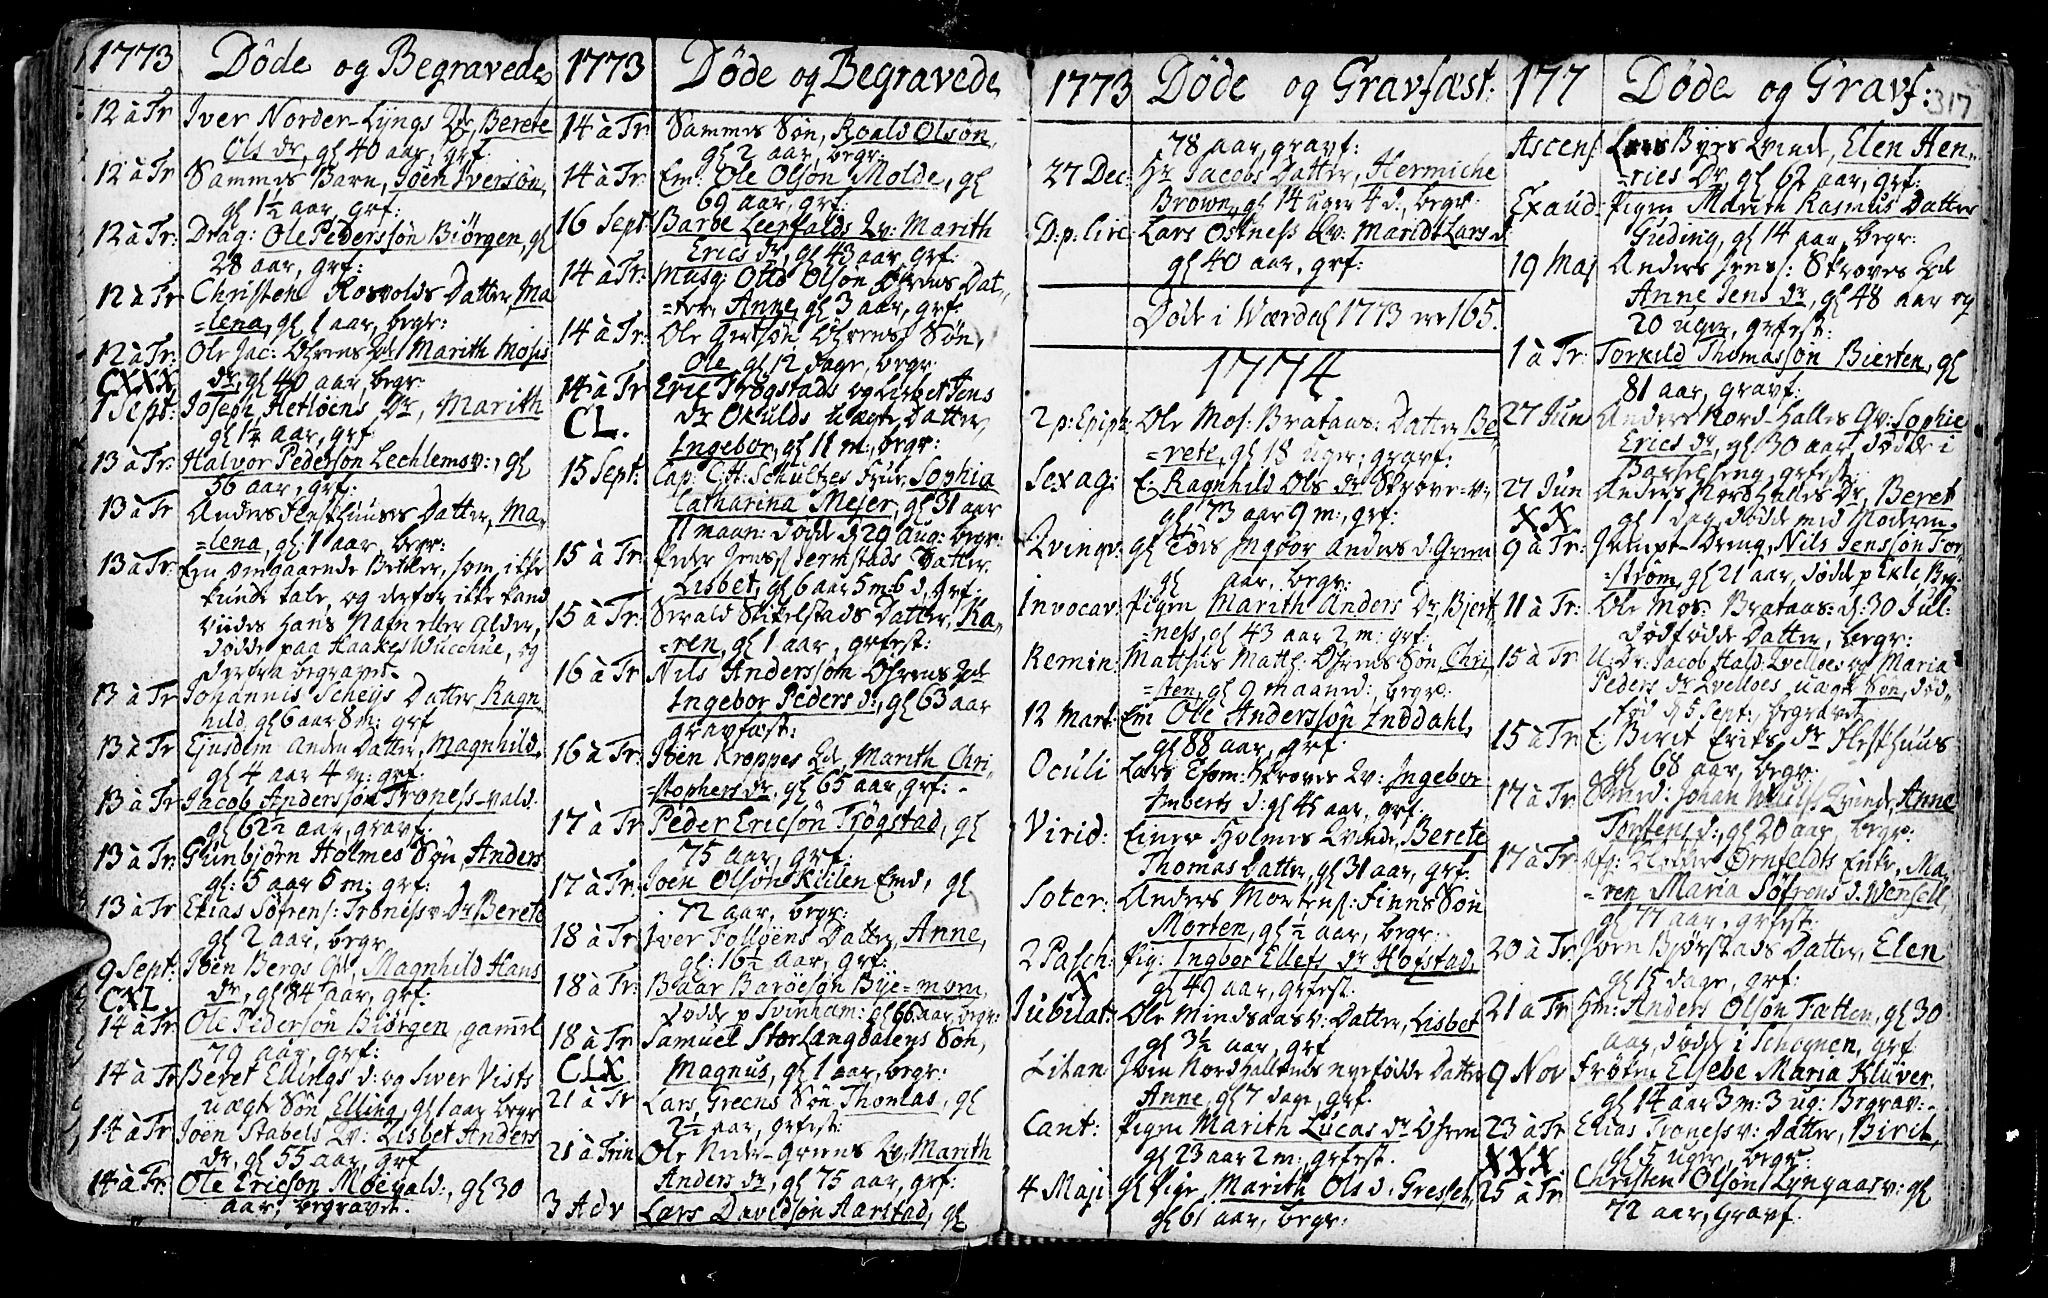 1773 Døde og Begravede
12 à Tr Iver Norder-Lyngs Dr, Berete
Ols dr, gl 40 aar, grf:
12 à Tr Sammes Barn, Joen Iversøn,
gl 1½ aar, grf:
12 à Tr: Drag: Ole Pederssøn Biørgen, gl
28 aar, grf:
12 à Tr Christen Rosvolds Datter Ma
=lena, gl 1 aar, begr:
12 à Tr: Ole Jac: Øhrens Marith Moses
CXXX dr, gl 40 aar, begr.
1 Sept: Joseph Hetløens Dr, Marith
gl 1½ aar, grf.
13 à Tr: Halvor Pedersøn Lechlemsv:, gl
56 aar, grf:
13 à Tr Anders Flesthuuses Datter, Ma-
=lena, gl: 1 aar, begr:
13 à Tr: Een omgaaende Betler, som ikke
kunde tale, og derfor ikke kand
viides hans Nafn eller Alder,
døde paa Haakes Wucchue, og
derfra begravet.
13 à Tr Johannis Scheys Datter Ragn-
hild, gl 6 aar 8 m: grf
13 à Tr Ejusdem Anden Datter, Magnhild,
gl 4 aar 4 m: grf.
13 à Tr Jacob Anderssøn Troness-vald.
gl 62½ aar, gravf:
13 à Tr: Gunbjørn Holmes Søn, Anders
gl: 5 aar 5 m: grf:
13 à Tr Elias Søfrens: Tronessv: Dr Berete
gl 2 aar, begr
9 Sept: Joen Bergs Magnhild Hans
CXL dr, gl 84 aar, grf:
14 à Tr: Ole Pedersøn Biørgen, gammel
79 aar, grf:
14 à Tr Beret Ellings d: og Siver Vists
uægte Søn Elling, gl 1 aar begr
14 à Tr Joen Stabels Qv: Lisbet Anders
dr, gl 55 aar, grf
14 à Tr: Ole Ericsøn Moevald:, gl 30
aar, begravet.
1773 Døde og Begravede
14 à Tr Sammes Søn, Roald Olsøn,
gl 2 aar, begr:
14 à Tr: Em: Ole Olsøn Molde, gl
69 aar, grf:
16 Sept: Baroe Leerfalds Qv: Marith
Erics dr, gl 43 aar, grf:
14 à Tr: Musq: Otto Olsøn Øhrens Dat-
=ter Anne, gl 3 aar, grf.
14 à Tr: Ole Giertsøn Øhrens Søn,
Ole, gl 12 dage, begr
14 à Tr Eric Trøgstads og Lisbet Jens
CL. dr Okulds uægte Datter
Ingebor, gl 11 m:, begr:
15 Sept: Cap: C.H: Schultzes Frue, Sophia
Catharina Mejer, gl 31 aar
11 maan: døde d 29 Aug: begr:
15 à Tr: Peder Jenss Jermstads Datter
Lisbet, gl 6 aar 5 m: 6 d, grf.
15 à Tr: Sivald Stikelstads Datter, Ka-
=ren, gl 1 aar, grfest:
16 à Tr Nils Anderssøn Øhrens
Ingebor Peders d:, gl 63 aar
gravfæst:
16 à Tr: Joen Kroppes Marith Chri-
=stophers dr, gl 65 aar, grf:
17 à Tr Peder Ericsøn Trøgstad, gl
75 aar, grf:
17 à Tr. Joen Olsøn Kulen Emd, gl
72 aar, begr:
18 à Tr Iver Folløens Datter, Anne,
gl: 16½ aar, grf:
18 à Tr: Baar Baroesøn Bye=morn,
døde p Svinham: gl 66 aar, begr:
18 à Tr Samuel Stor Langdalens Søn,
CLX Magnus, gl 1 aar, begr:
21 à Tr Lars Greens Søn Thomas, gl
2½ aar, grfest:
21 à Trin Ole Neder-Greens Qv, Marith
Anders dr, gl 75 aar, grf:
3 Adv Lars Davidsøn Aarstad, gl
1773 Døde og Gravfæst:
78 aar, gravf:
27 Dec: Hr Jacobs Datter, Hermiche
Brown, gl 14 uger 4 d:, begr:
D: p: Circ: Lars Østness Qv: Maridt Lars d
gl 40 aar, grf:
Døde i Wærdal 1773 ere 165.
1774
2 p: Epiph: Ole Mos: Brataas: Datter Be
=rete, gl 18 uger, gravf:
Sexag: E: Ragnhild Ols dr Skrove-v:
gl 73 aar 9 m:, grf:
Qvinqv: gl Tøs Ingbor Anders d: Green
gl aar, begr:
Invocav: Pigen Marith Anders Dr Bjert
=ness, gl 43 aar 2 m: grf:
Remin: Matthis Matth: Øhrens Søn, Chri
=sten, gl 9 maaned:, begr:
12 Mart: Em Ole Anderssøn Inddahl,
gl 88 aar, grf:
Oculi Lars Esom: Skroves Qv: Ingebor
Imberts d: gl 45 aar, grf
Virid: Einer Holmes Qvinde, Berete
Thomas Datter, gl 31 aar, grf:
Soter: Anders Mortens: Finns Søn
Morten, gl ½ aar, begr:
2 Pasch: Pig: Ingbor Ellefs dr Hofstad,
X gl 49 aar, grfest.
Jubilat: Ole Mindsaasv: Datter, Lisbet
gl 3½ aar, grf
Litan Joen Nordhallens nyefødde Datter
Anne, gl 7 dage, grf.
Cant: Pigen Marith Lucas dr Øhren
gl 23 aar 2 m: grfest.
4 Maji gl Pige, Marith Ols d: Gressel,
gl 61 aar, begr:
177 Døde og Gravf: 317
Ascens: Lars Byes Qvinde, Elen Hen-
=rics Dr, gl 62 aar, grf:
Exaud: Pigen Maren Rasmus Datter
Gieding, gl 14 aar, begr:
19 Maj Anders Jens: Skroves
Anne Jens dr, gl 48 aar og
20 uger, grfest:
1 à Tr: Torkild Thomassøn Bierten, gl
81 aar, gravf:
27 Jun Anders Nord-Halles Qv: Sophie
Erics dr, gl 30 aar, døde i
Barselseng, grfest:
27 Jun Anders Nordhalles Dr, Beret
XX gl 1 dag, døde med Moderen.
9 à Tr: Jempt-Dreng, Nils Jenssøn For,
=strøm, gl 21 aar, døde p Ekle Beg:
11 à Tr: Ole Mos: Brataas: d: 30 Jul:
dødfødde Datter, begr:
15 à Tr U: Dr: Jacob Hald: Qvelloes og Maria
Peders dr Qvelloes uægte Søn, død-
fød d 5 Sept:, begravet
15 à Tr E: Birit Eriks dr Flesthuus
gl 68 aar, begr:
17 à Tr Smed: Johan Wulfs Qvinde, Anne
Torstens d:, gl 20 aar, begr:
17 à Tr: Afg: Ørnfeldts Enke, Ma-
=ren Maria Søfrens d: Wensell,
gl 77 aar, grfest.
20 à Tr Joen Bjørstads Datter, Elen
gl 15 dage, grf:
21 à Tr Hm: Anders Olsøn Fætten, gl 30
aar, døde i Schognen, grf
9 Nov Frøken Elsebe Maria Klüver,
gl 14 aar 3 m: 3 ug: Begrav:
23 à Tr Elias Tronessv: Datter, Birit,
XXX gl 5 uger, begr:
25 à Tr Christen Olsøn Lyngaasv: gl
72 aar, gravf.